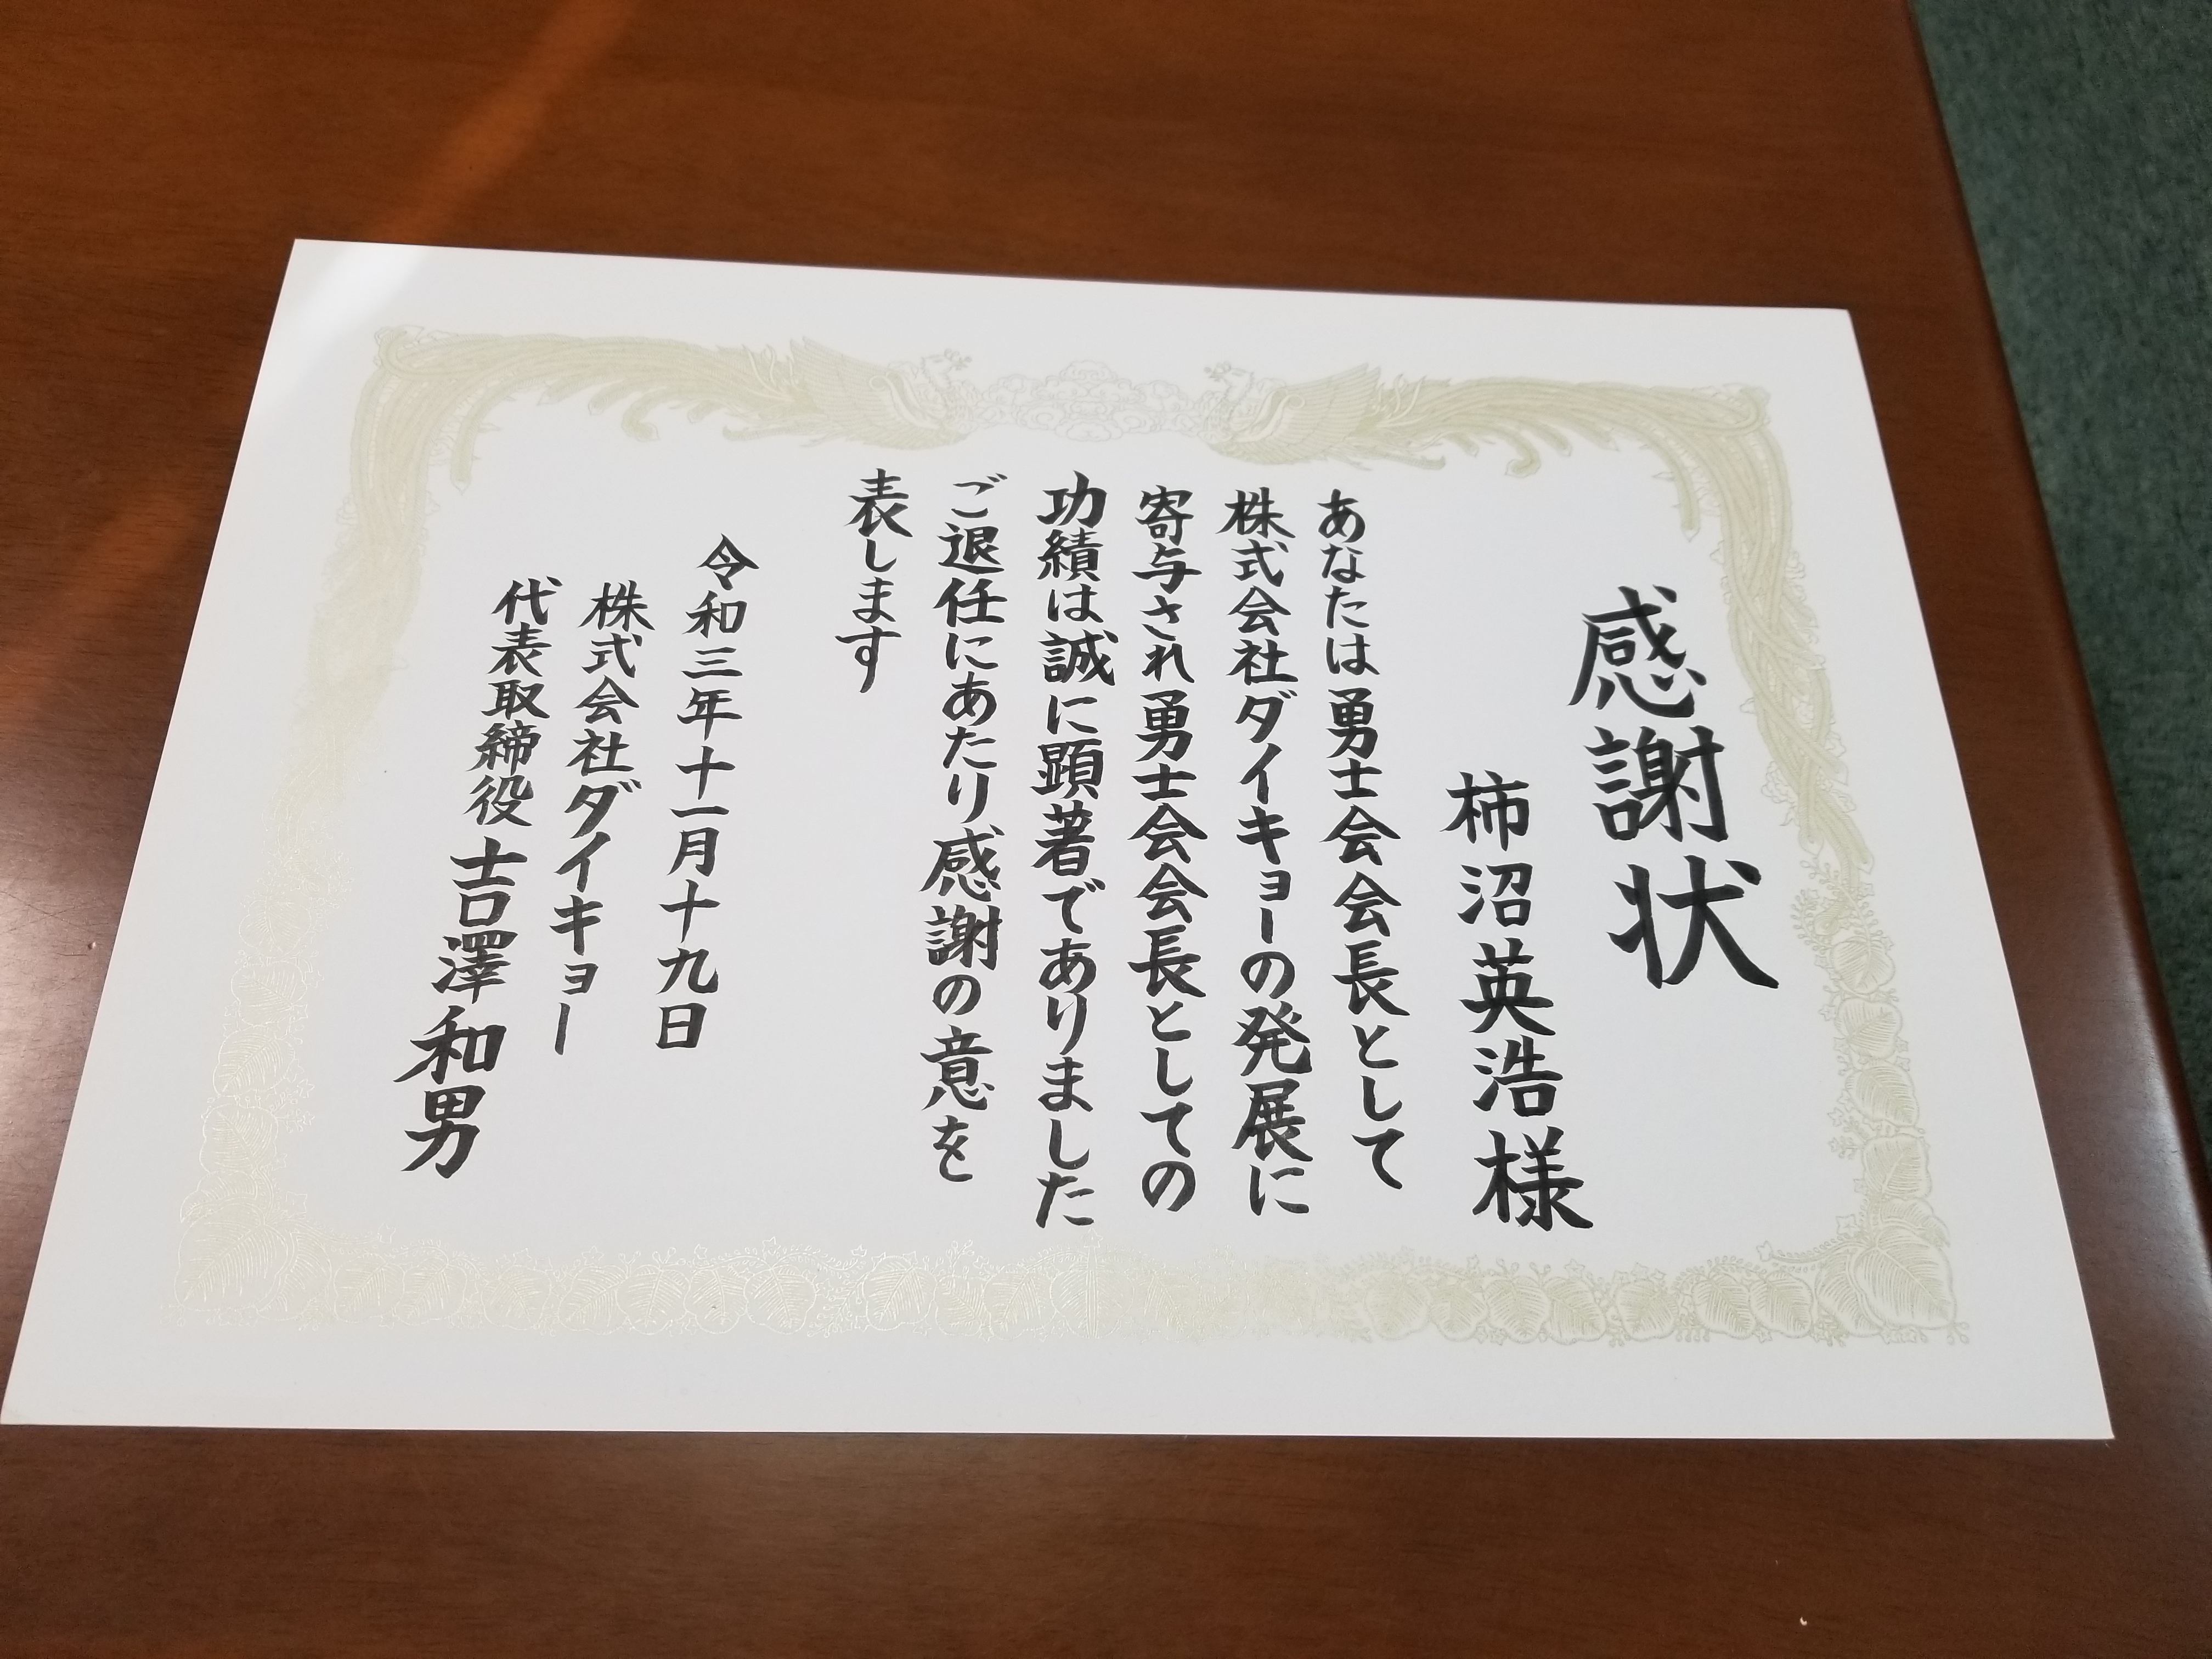 感謝状
柿沼英浩様
あなたは勇士会会長として
株式会社ダイキョーの発展に
寄与され勇士会会長としての
功績は誠に顕著でありました
ご退任にあたり感謝の意を
表します
令和三年十一月十九日
株式会社ダイキョー
代表取締役 𠮷澤和男